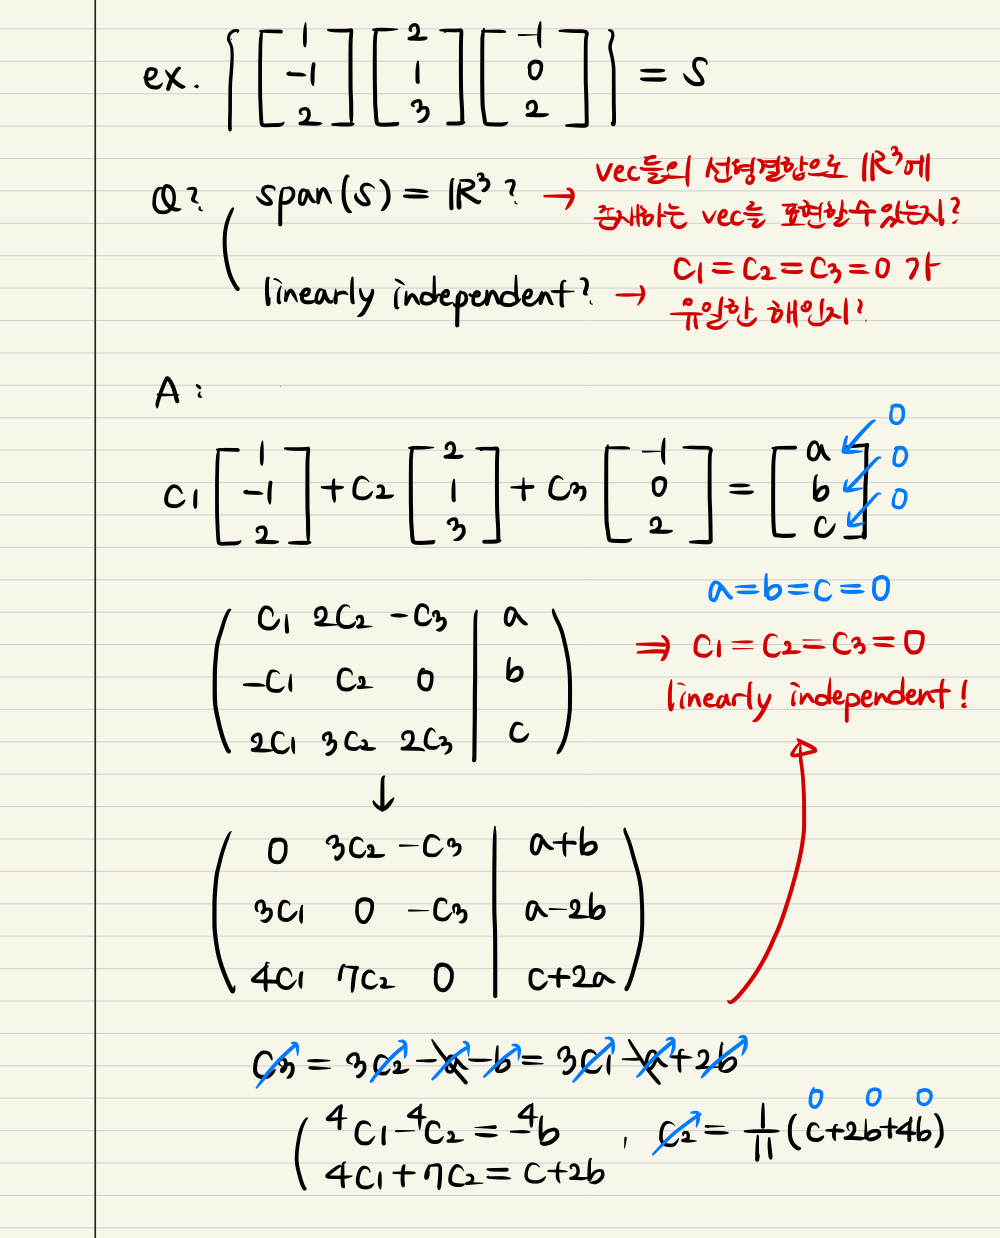 ex. { [1 -1 2] [2 1 3] [-1 0 2] } = S
Q? span(S) = ℝ³ ? → vec들의 선형결합으로 ℝ³에
존재하는 vec를 표현할 수 있는지?
linearly independent? → C₁ = C₂ = C₃ = 0 가
유일한 해인지?
A :
C₁ [1 -1 2] + C₂ [2 1 3] + C₃ [-1 0 2] = [a b c] 0 0 0
a = b = c = 0
⇒ C₁ = C₂ = C₃ = 0
linearly independent!
( C₁ 2C₂ -C₃ | a
-C₁ C₂ 0 | b
2C₁ 3C₂ 2C₃ | c )
↓
( 0 3C₂ -C₃ | a+b
3C₁ 0 -C₃ | a-2b
4C₁ 7C₂ 0 | c+2a )
C₃ = 3C₂ - a - b = 3C₁ - a + 2b
4C₁ - 4C₂ = -4b
4C₁ + 7C₂ = c+2b
, C₂ = 1/11 (c+2b+4b) 0 0 0